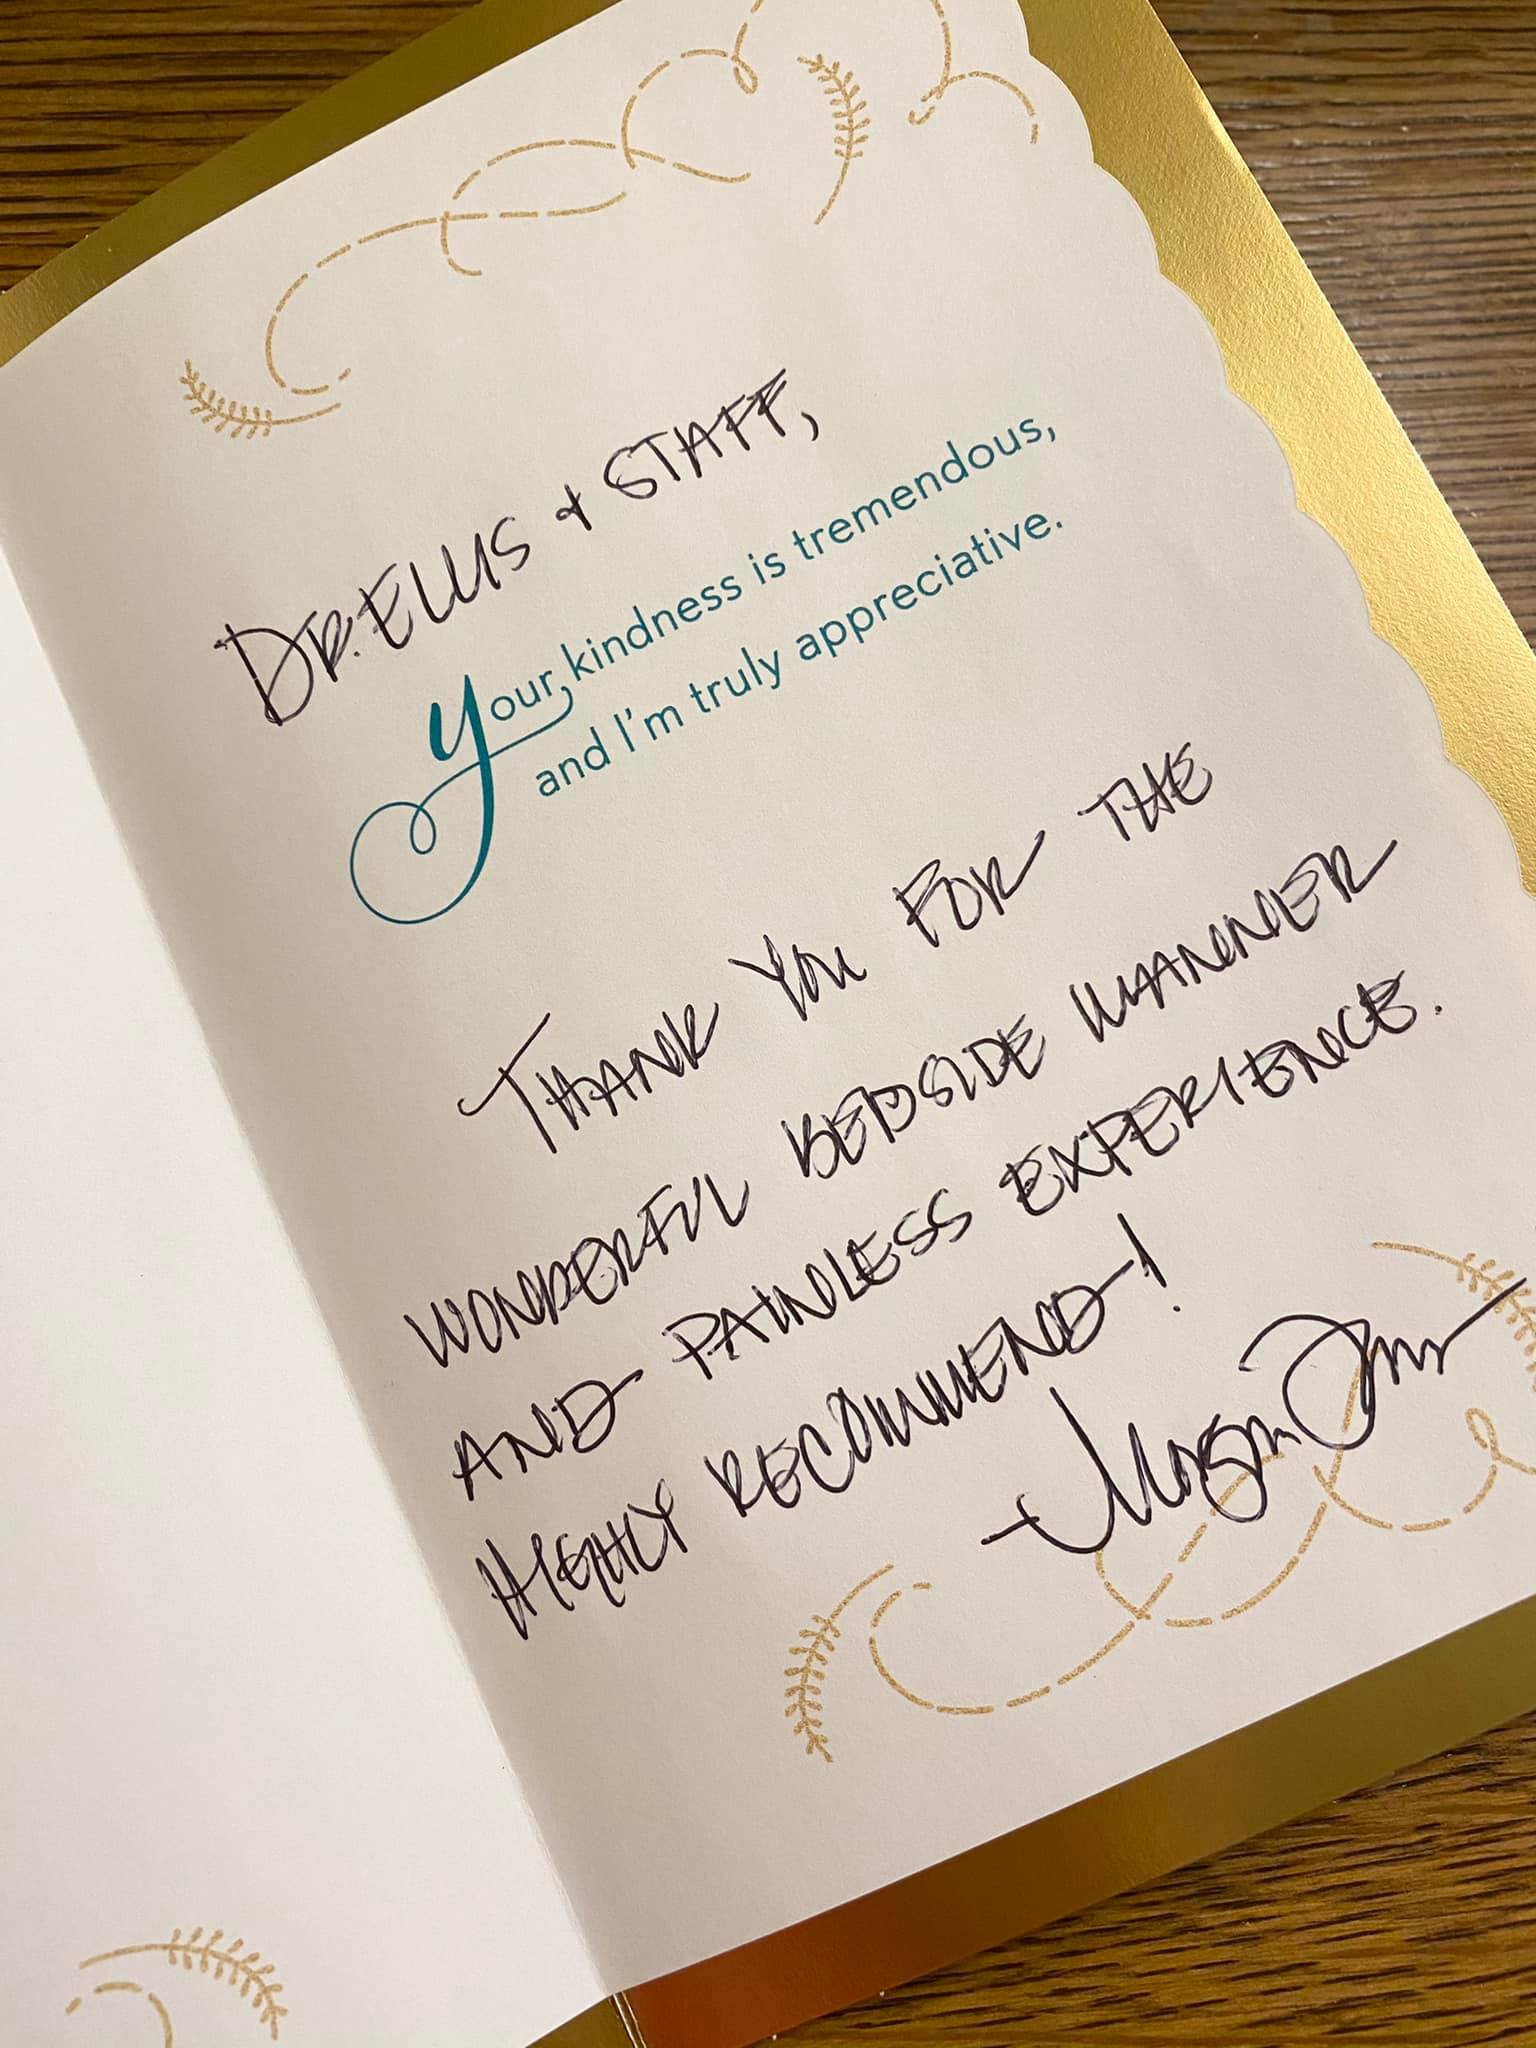 DR. ELLIS + STAFF,
Your kindness is tremendous,
and I'm truly appreciative.
THANK YOU FOR THE
WONDERFUL BEDSIDE MANNER
AND PAINLESS EXPERIENCE.
HIGHLY RECOMMEND!